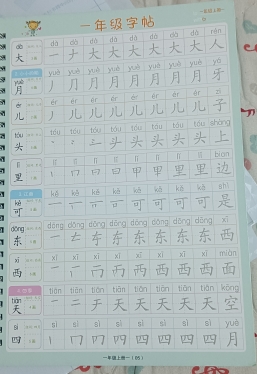 一年级字帖
dà dà dà dà dà dà dà dà rén
大 一 ナ 大 大 大 大 大 大 人
yuè yuè yuè yuè yuè yuè yuè yuè yá
月 丿 月 月 月 月 月 月 牙
ér ér ér ér ér ér ér ér zi
儿 丿 儿 儿 儿 儿 儿 儿 子
tóu tóu tóu tóu tóu tóu tóu tóu shang
头 头 头 头 头 头 上
lǐ lǐ lǐ lǐ lǐ lǐ lǐ lǐ bian
里 丨 冂 日 日 甲 甲 里 里 边
kě kě kě kě kě kě kě kě shì
可 一 可 可 可 可 可 是
dōng dōng dōng dōng dōng dōng dōng dōng xī
东 一 东 东 东 东 东 西
xī xī xī xī xī xī xī xī miàn
西 一 西 西 西 西 面
tiān tiān tiān tiān tiān tiān tiān tiān kōng
天 一 二 天 天 天 天 天 天 空
sì sì sì sì sì sì sì sì yuè
四 丨 冂 四 四 四 四 月
一年级上册一（05）